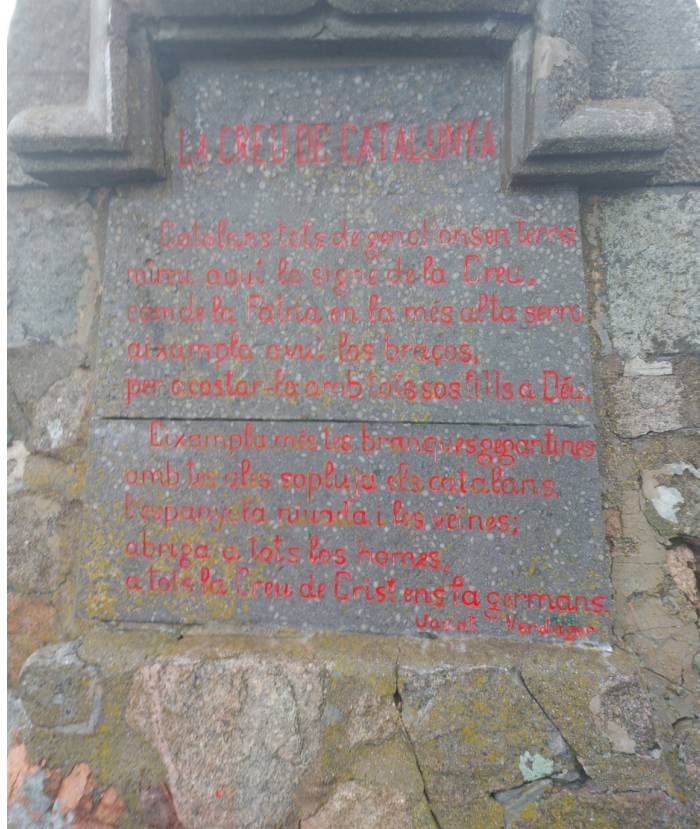 LA CREU DE CATALUNYA
Catalans tots de genollons en terra
mireu aquí lo signe de la Creu,
com de la Patria en la més alta serra
aixampla avui los braços,
per acostar-la amb tots sos fills a Déu.
Eixampla més tes branques gegantines
amb tes ales sopluja els catalans,
l'espanyola niuada i les veïnes;
abriga a tots los homes,
a tots la Creu de Crist ens fa germans.
Jacint Verdaguer